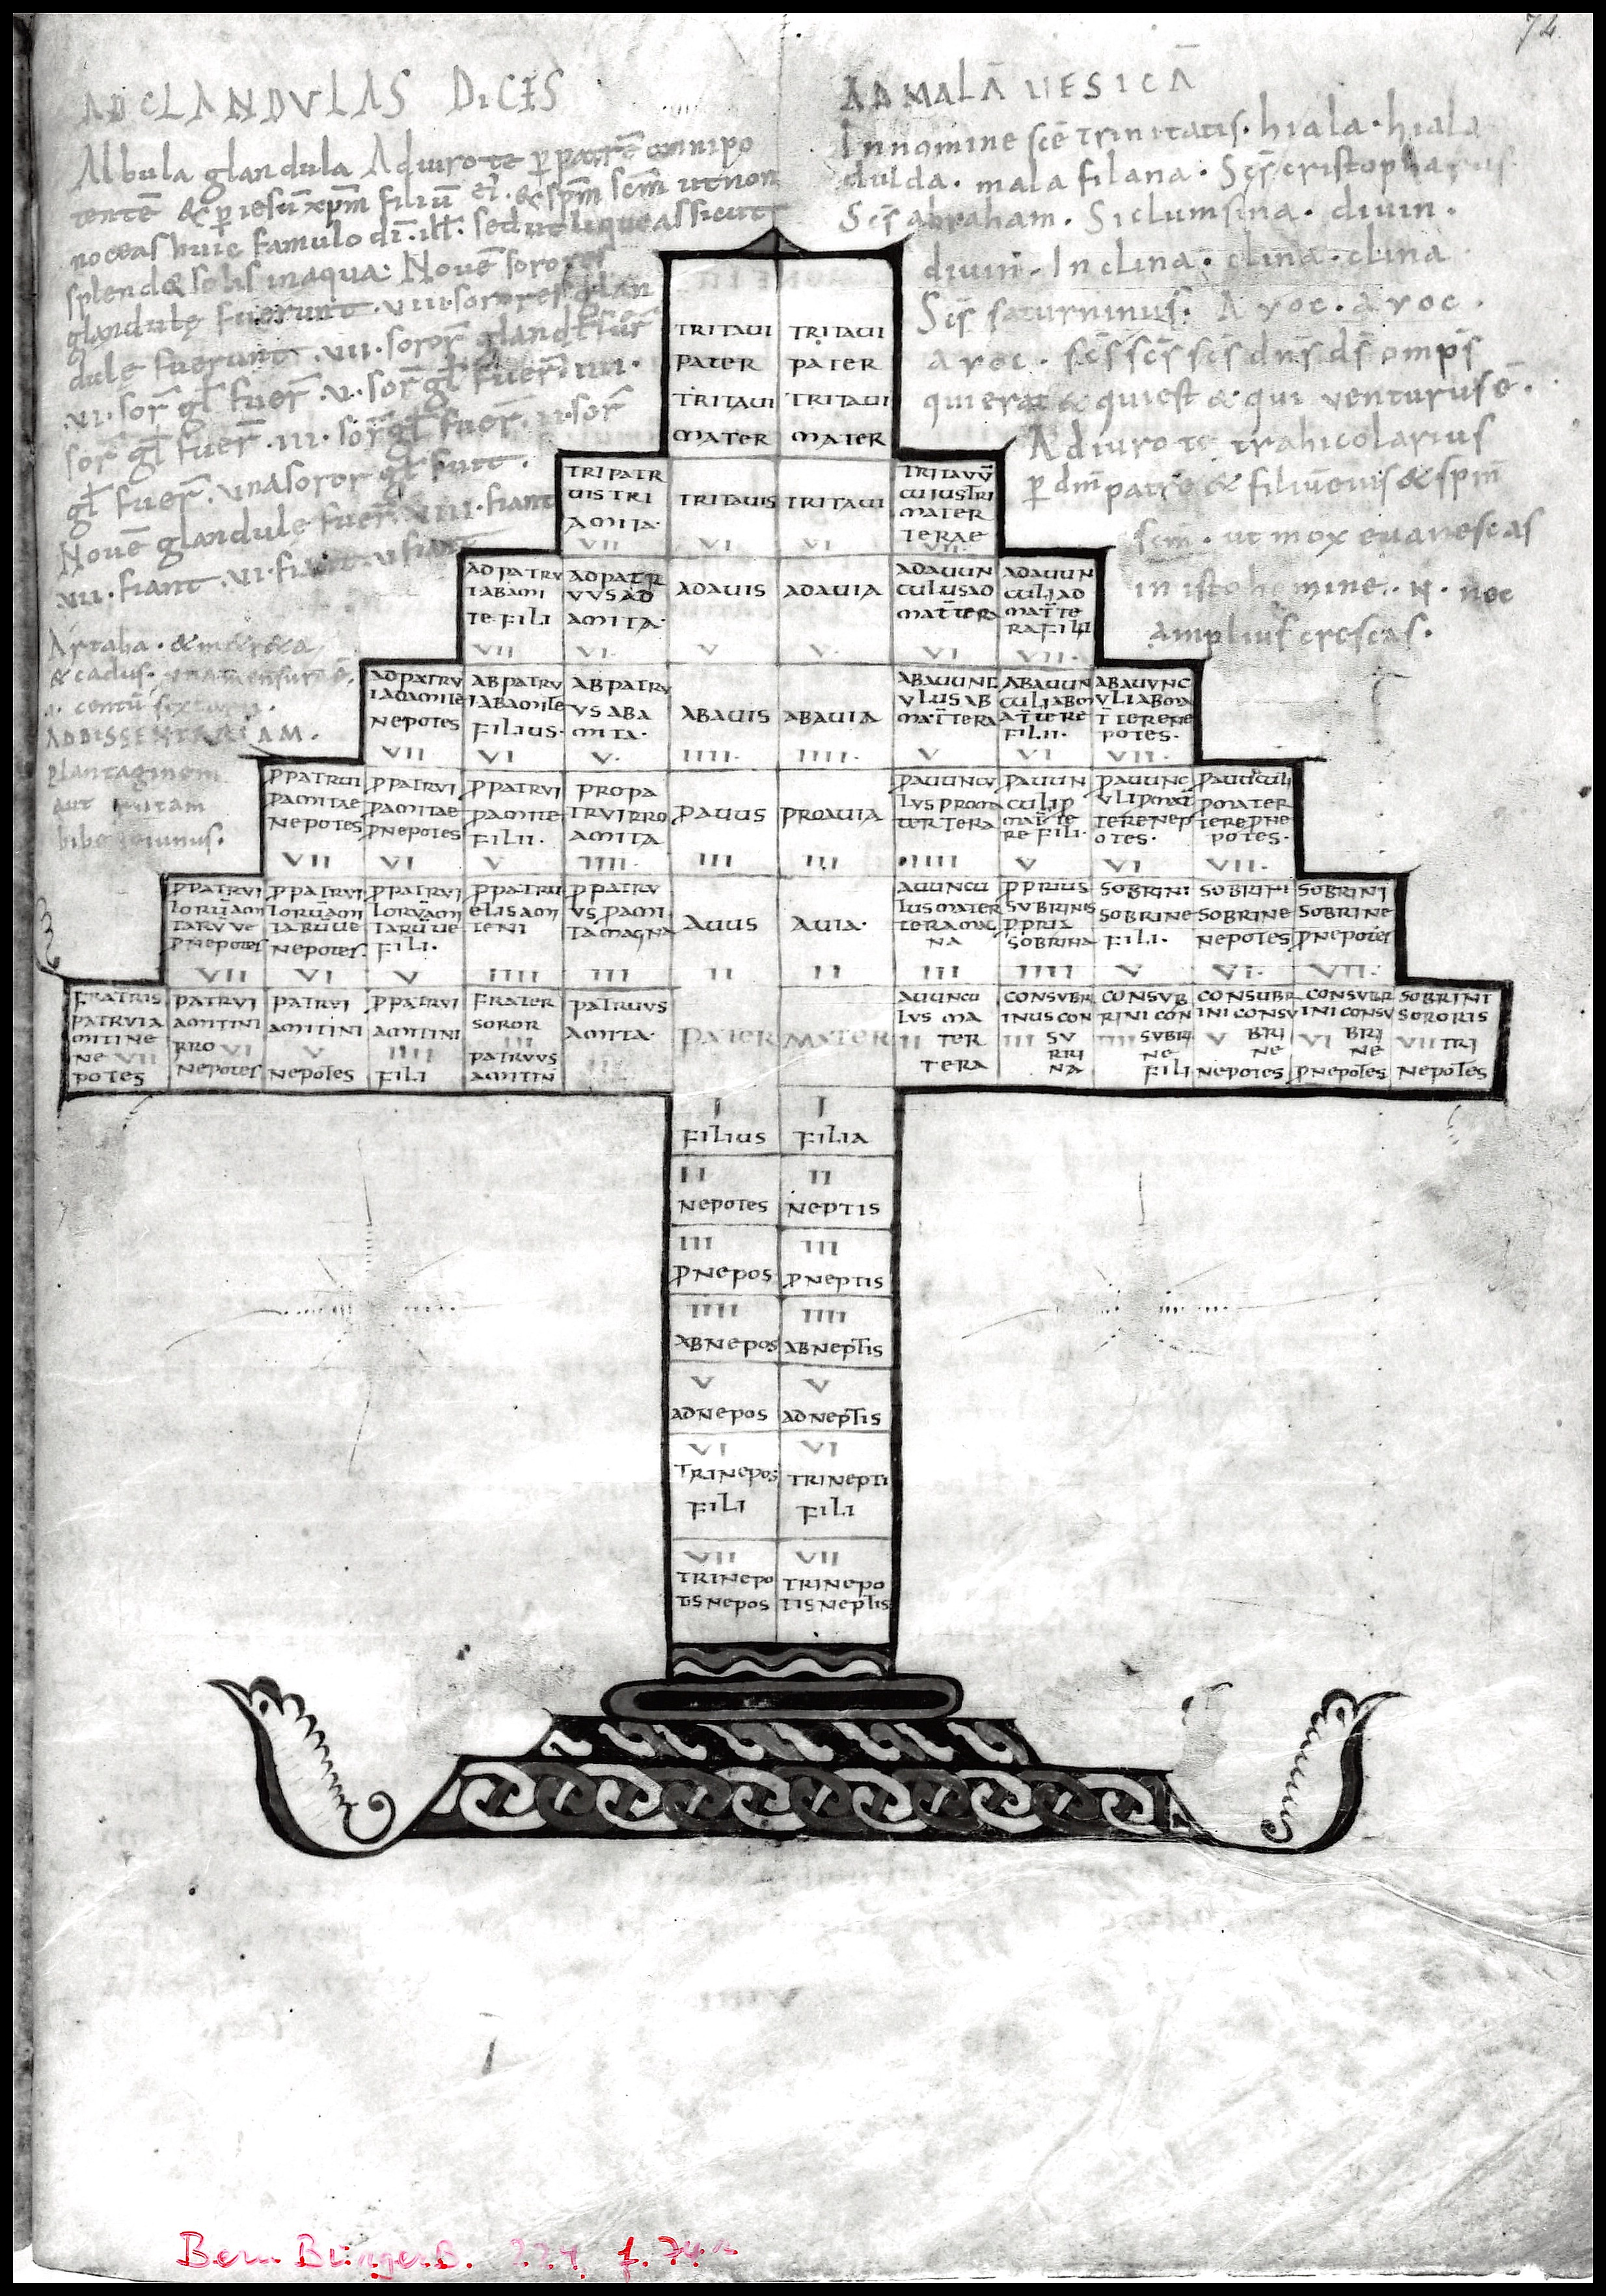 74
AD GLANDULAS DICES
Albula glandula Adiuro te p̄ patrē omnipo
tentē & p̄ iesū xp̄m filiū ei. & sp̄m sc̄m ut non
noceas huic famulo dī. ill. sed ut liqueas sicut
splend& solis in aqua: Nouē sorores
glandulę fuerunt. VIII. sorores glan
dule fuerunt. VII. soror̄ gland̄ fuer̄
VI. sor̄ gl̄ fuer̄. V. sor̄ gl̄ fuer̄. IIII.
sor̄ gl̄ fuer̄. III. sor̄ gl̄ fuer̄. II. sor̄
gl̄ fuer̄. una soror gl̄ fuit.
Nouē glandule fuer̄. VIII. fiant
VII. fiant. VI. fiant. V. fiant
Artaba. & m&r&a
& cadus. una mensura ē.
centū sextarii.
AD DISSENTERIAM.
plantaginem
aut rutam
bibe ieiunus.
AD MALĀ UESICĀ
In nomine scē trinitatis. hiala. hiala
dulda. mala filana. Sc̄s cristopharus
Sc̄s abraham. Siclumsina. diuin.
diuin. In clina. clina. clina
Sc̄s saturninus. A roc. a roc.
a roc. sc̄s sc̄s sc̄s dn̄s ds̄ omps̄
qui erat & qui est & qui uenturus ē.
Adiuro te trahicolarius
p̄ dm̄ patrē & filiū eius & sp̄m
scm̄. ut mox euanescas
in isto homine. N. nec
amplius crescas.
TRITAUI TRITAUI
PATER PATER
TRITAUI TRITAUI
MATER MATER
TRIPATR
UIS TRI
AMITA.
VII
TRITAUIS
VI
TRITAUI
VI
TRITAVV̄
CUIUSTRI
MATER
TERAE
VII.
ADPATRV
IABAMI
TE FILI
VII
ADPATR
VVS AD
AMITA.
VI.
ADAUIS
V
ADAUIA
V.
ADAUUN
CULUSAD
MAT̄TERA
VI
ADAUUN
CULIAD
MAT̄TE
RAFILII
VII.
ADPATRV
IADAMITE
NEPOTES
VII
ABPATRV
IABAMITE
FILIUS.
VI
ABPATRV
VS ABA
MITA.
V.
ABAUIS
IIII.
ABAUIA
IIII.
ABAUUNC
VLUSAB
MAT̄TERA
V
ABAUUN
CULIABM
AT̄TERE
FILII.
VI
ABAVVNC
VLIABMA
T̄TERENE
POTES.
VII.
P̄PATRUI
PAMITAE
NEPOTES
VII
P̄PATRVI
PAMITAE
P̄NEPOTES
VI
P̄PATRVI
PAMITE
FILII.
V
PROPA
TRVIPRO
AMITA
IIII.
PAUUS
III
PROAUIA
III
PAUUNCV
LVS PROMA
TERTERA
IIII
PAUUN
CULIP
MAT̄TE
RE FILI.
V
PAUUNC
VLIPMAT̄
TERENEP
OTES.
VI
PAUUCULI
PMATER
TEREPNE
POTES.
VII.
P̄PATRVI
LORŪAMI
TARVVE
P̄NEPOTES
VII
P̄PATRVI
LORŪAMI
TARUUE
NEPOTES.
VI
P̄PATRVI
LORV̄AMI
TARUUE
FILI.
V
P̄PATRU
ELISAMI
TENI
IIII
P̄PATRV
VS PAMI
TAMAGNA
III
AUUS
II
AUIA.
II
AUUNCU
LUSMATER
TERAMAG
NA
III
P̄PRIUS
SVBRINUS
P̄PRIA
SOBRINA
IIII
SOBRINI
SOBRINE
FILI.
V
SOBRINI
SOBRINE
NEPOTES
VI.
SOBRINI
SOBRINE
P̄NEPOTES
VII.
FRATRIS
PATRUIA
MITINE
NE VII
POTES
PATRVI
AMITINI
PRO VI
NEPOTES
PATRVI
AMITINI
V
NEPOTES
P̄PATRVI
AMITINI
IIII
FILI
FRATER
SOROR
III
PATRVVS
AMITIN
PATRUVS
AMITA.
III
PATER
MATER
AUUNCU
LVS MA
II TER
TERA
CONSVBR
INUS CON
III SV
BRI
NA
CONSVB
RINI CON
IIII SVBRI
NE
FILI
CONSUBR
INI CONSV
V BRI
NE
NEPOTES
CONSVBR
INI CONSV
VI BRI
NE
P̄NEPOTES
SOBRINI
SORORIS
VII TRI
NEPOTES
I I
FILIUS FILIA
II II
NEPOTES NEPTIS
III III
P̄NEPOS P̄NEPTIS
IIII IIII
ABNEPOS ABNEPTIS
V V
ADNEPOS ADNEPTIS
VI VI
TRINEPOS TRINEPTI
FILI FILI
VII VII
TRINEPO TRINEPO
TISNEPOS TISNEPTIS
Bern. Bürger B. 224 f. 74r